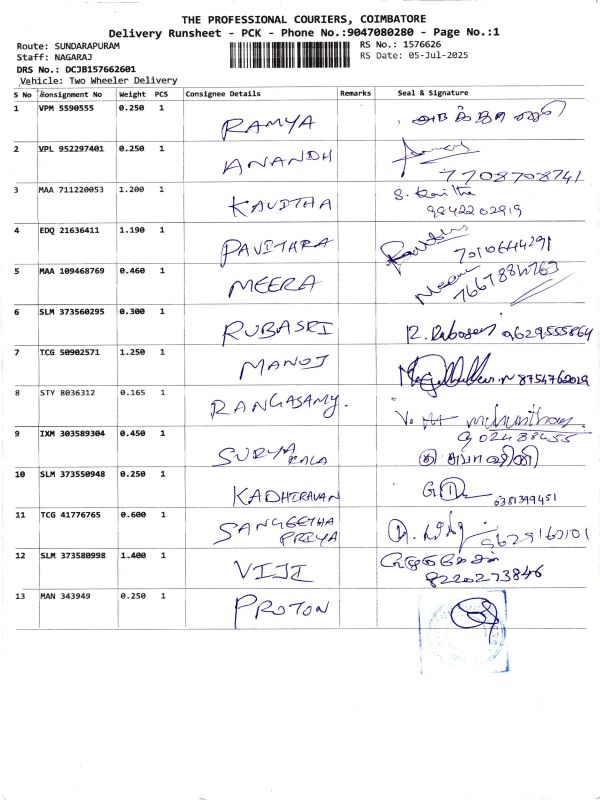 THE PROFESSIONAL COURIERS, COIMBATORE
Delivery Runsheet - PCK - Phone No.:9047080280 - Page No.:1
Route: SUNDARAPURAM RS No.: 1576626
Staff: NAGARAJ RS Date: 05-Jul-2025
DRS No.: DCJB157662601
Vehicle: Two Wheeler Delivery
S No Consignment No Weight PCS Consignee Details Remarks Seal & Signature
1 VPM 5590555 0.250 1 RAMYA
2 VPL 952297401 0.250 1 ANANDH
7708708741
3 MAA 711220053 1.200 1 KAVITHA S. Kavitha
9842202919
4 EDQ 21636411 1.190 1 PAVITARA
7010644291
5 MAA 109468769 0.460 1 MEERA Meera
6 SLM 373560295 0.300 1 RUBASRI 9629555864
7 TCG 50902571 1.250 1 MANOJ 8754762029
8 STY 8036312 0.165 1 RANGASAMY.
9 IXM 303589304 0.450 1 SURYA KALA
10 SLM 373550948 0.250 1 KADHIRAVAN
6381399451
11 TCG 41776765 0.600 1 SANGEETHA PRIYA 9629160101
12 SLM 373580998 1.400 1 VIJI
8220273846
13 MAN 343949 0.250 1 PROTON